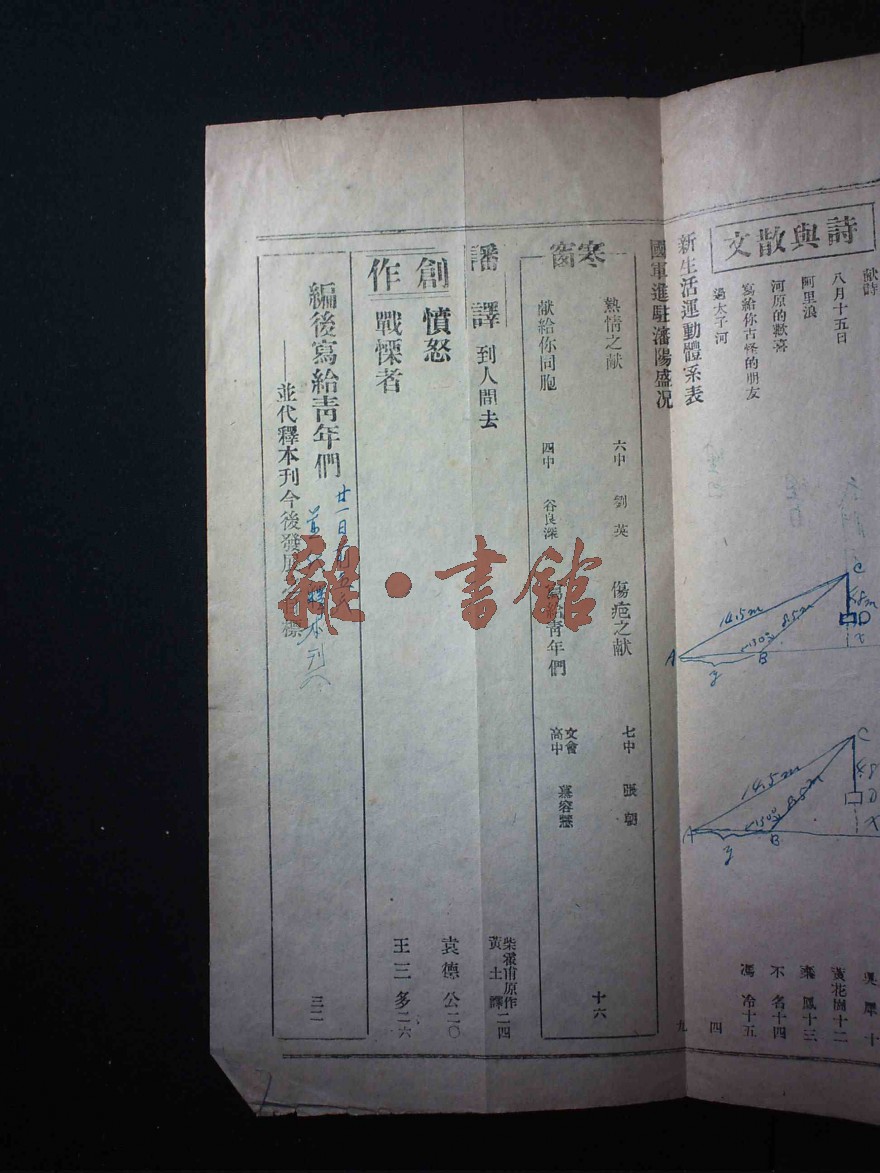 詩與散文
献時 吳犀 十
八月十五日 黃花崗十二
阿里浪 鳳十三
河原的歡喜 不名十四
寫給你古怪的朋友 馮冷十五
過太子河
新生活運動體系表 四
國軍進駐瀋陽盛况 九
寒窗
熱情之献 六中 劉英
傷疤之献 七中 張朝
献給你同胞 四中 谷良深
寫給青年們 文會高中 慕容慧
十六
譒譯
到人間去 柴霍甫原作 黃土譯 二四
創作
憤怒 袁德公二〇
戰慄者 王三多二六
編後寫給青年們
——並代釋本刊今後發展目標
三二
廿一日
釋本刊
雜·書館
A
B
C
D
14.5m
8.5m
150°
x
y
A
B
C
D
14.5m
8.5m
150°
x
y